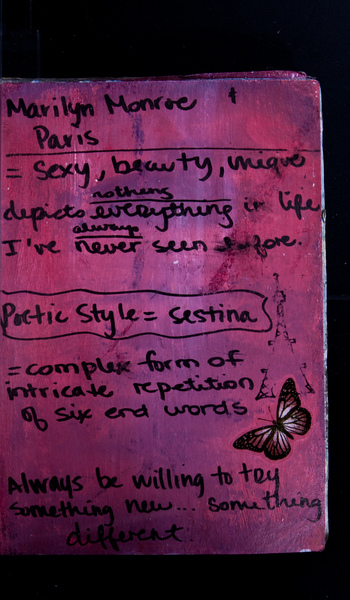 Marilyn Monroe &
Paris
= Sexy, beauty, unique
nothing
depicts everything in life
always
I've never seen before.
Poetic Style = sestina
= complex form of
intricate repetition
of six end words
Always be willing to try
something new... something
different.